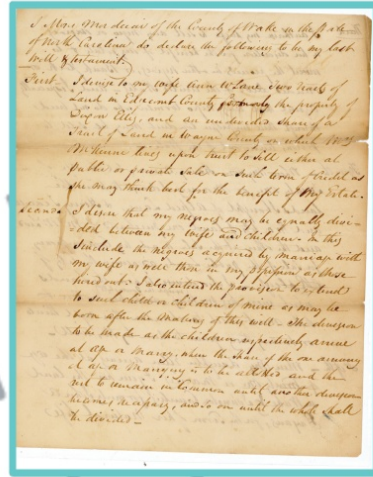 I Moses Mordecai of the County of Wake in the State
of North Carolina do declare the following to be my last
Will & testament.
First. I devise to my wife Ann W Lane two tracts of
Land in Edgecomb County formerly the property of
and an undivided Share of a
Tract of Land in Wayne County on which Mrs
lives upon trust to sell either at
public or private Sale on such term of Credit as
she may think best for the benefit of my Estate.
Second. I desire that my negroes may be equally divi-
ded between my wife and children. In this
I include the negroes acquired by marriage with
my wife as well those in my possession as those
hired out. I also intend the provision to extend
to such child or children of mine as may be
born after the making of this will. The division
to be made as the children respectively arrive
at age or marry, when the Share of the one arriving
at age or Marrying is to be allotted and the
rest to remain in Common until another division
becomes necessary, and so on until the whole shall
be divided